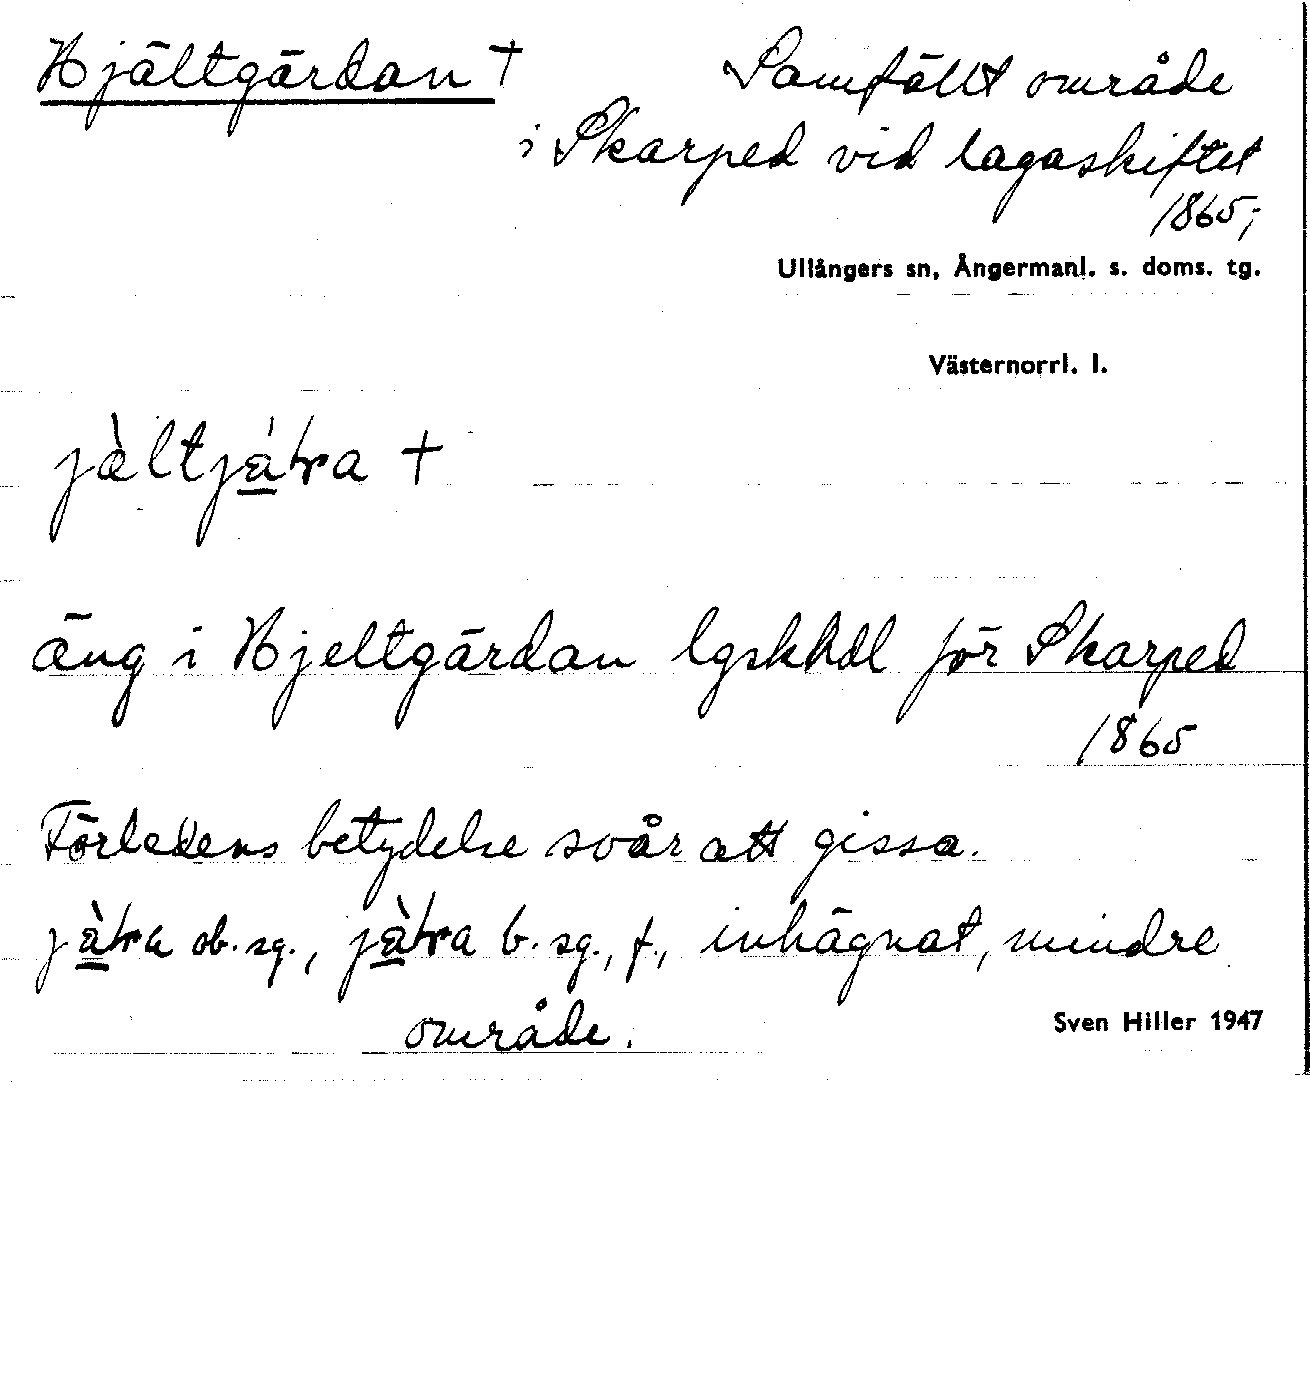 Hjältgärdan †
Samfällt område
i Skarped vid lagaskiftet
1865;
Ullångers sn, Ångermanl. s. doms. tg.
Västernorrl. l.
†
äng i Hjeltgärdan lgskhdl för Skarped
1865
Förledens betydelse svår att gissa.
ob. sg., b. sg., f., inhägnat, mindre
område.
Sven Hiller 1947